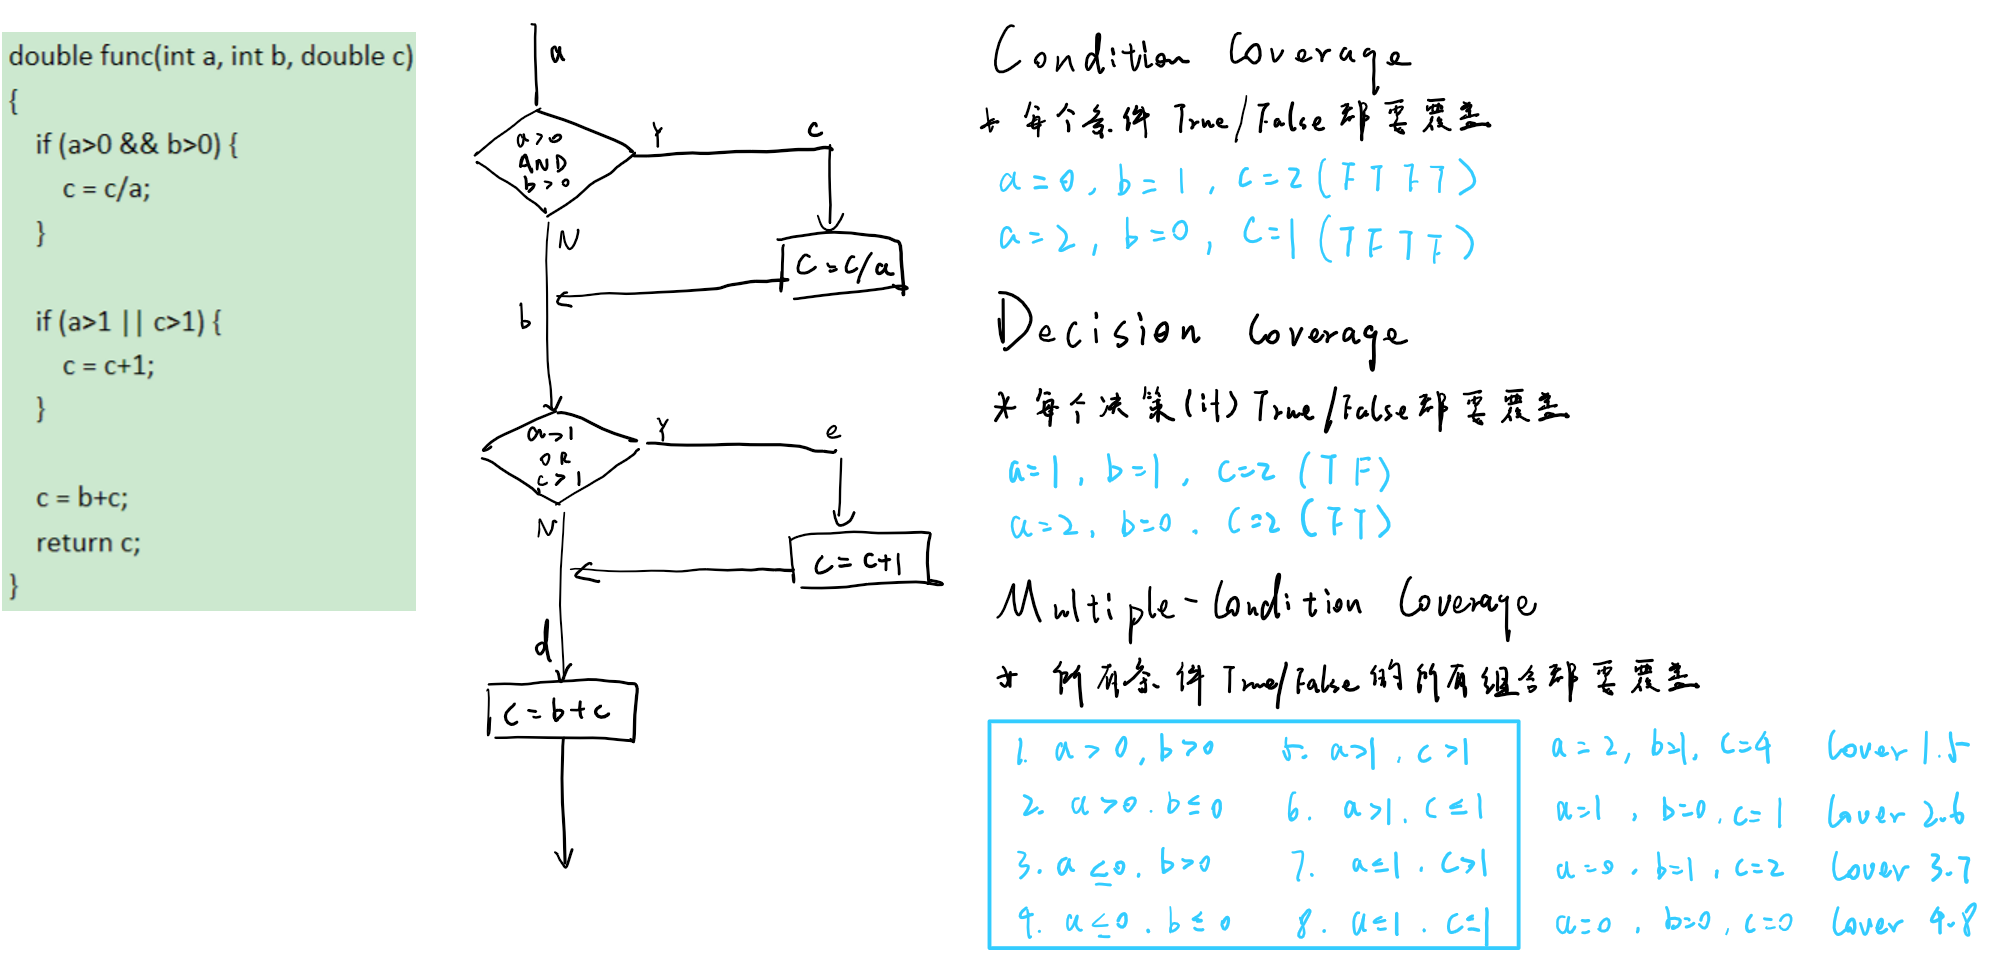 double func(int a, int b, double c)
{
if (a>0 && b>0) {
c = c/a;
}
if (a>1 || c>1) {
c = c+1;
}
c = b+c;
return c;
}
a
a>0
AND
b>0
Y
c
N
C=C/a
b
a>1
OR
c>1
Y
e
N
C=C+1
d
C=b+c
Condition Coverage
* 每个条件 True/False 都要覆盖
a=0, b=1, c=2 (F T F T)
a=2, b=0, c=1 (T F T F)
Decision Coverage
* 每个决策(if) True/False 都要覆盖
a=1, b=1, c=2 (T F)
a=2, b=0. c=2 (F T)
Multiple-Condition Coverage
* 所有条件 True/False 的所有组合都要覆盖
1. a>0, b>0 5. a>1, c>1
2. a>0. b≤0 6. a>1. c≤1
3. a≤0. b>0 7. a≤1. c>1
4. a≤0. b≤0 8. a≤1. c≤1
a=2, b=1, c=4 Cover 1.5
a=1, b=0, c=1 Cover 2.6
a=0. b=1, c=2 Cover 3.7
a=0. b=0, c=0 Cover 4.8